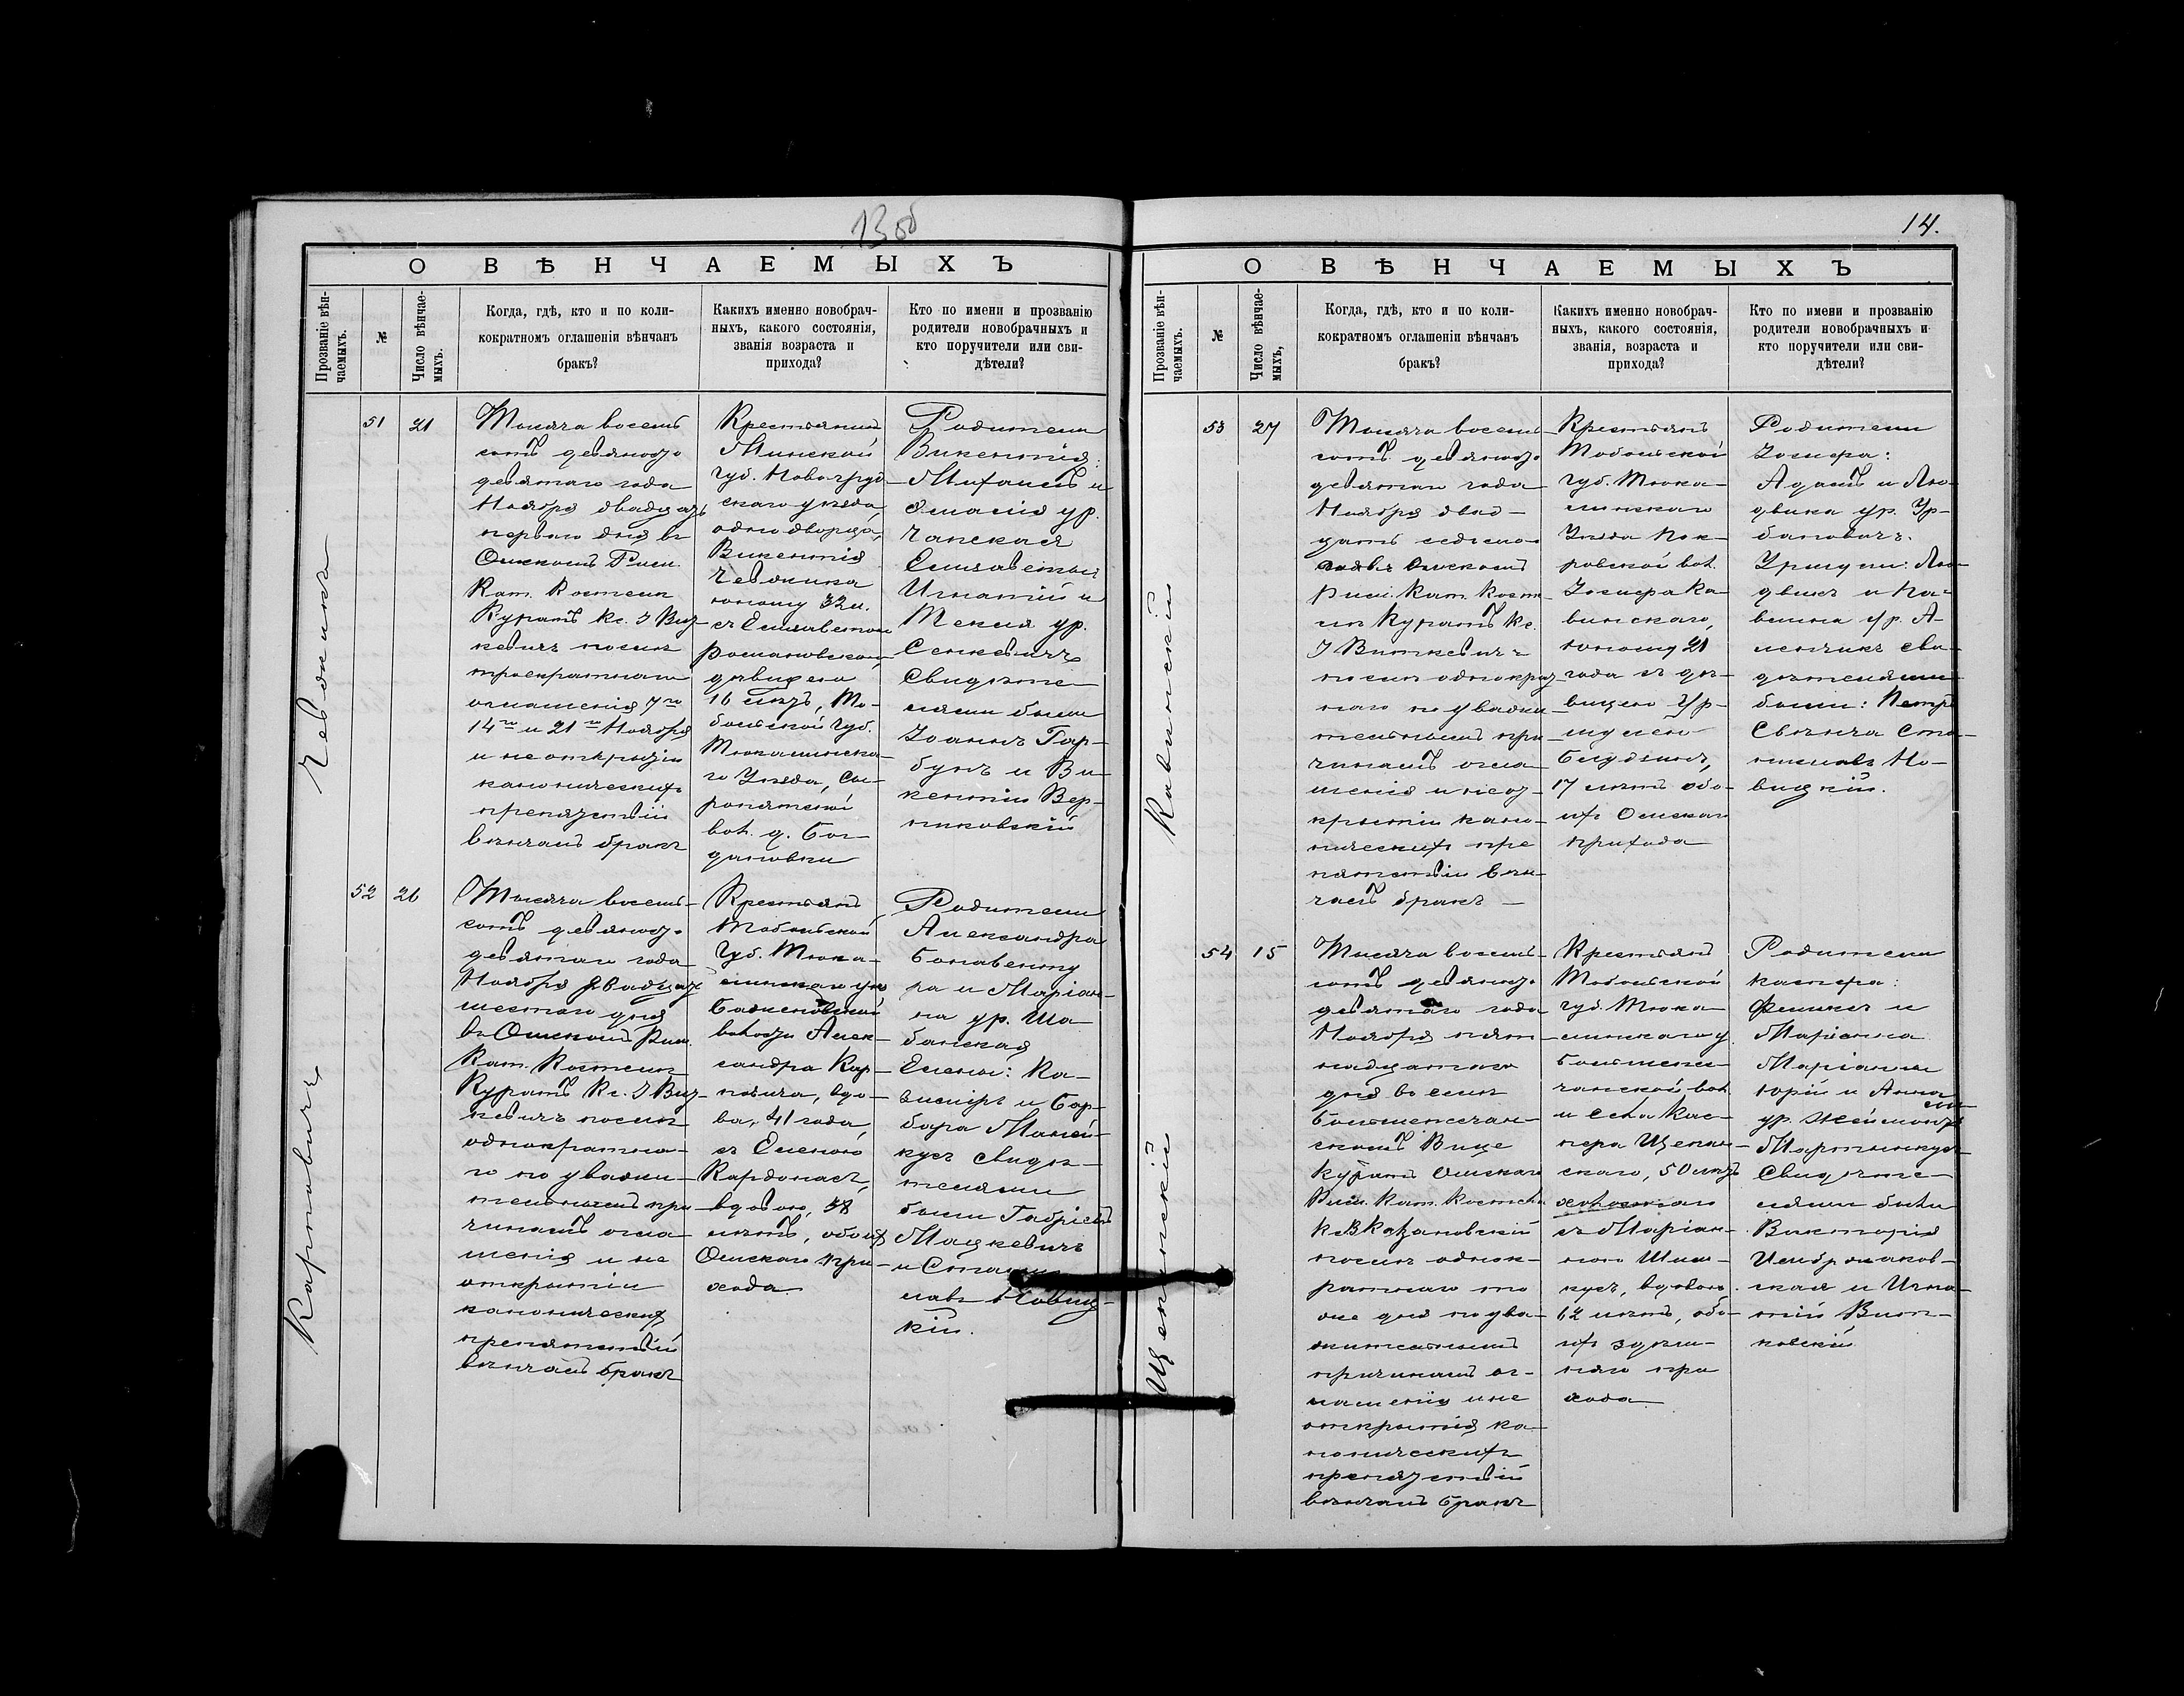 13 об
О ВѢНЧАЕМЫХЪ
Прозваніе вѣн-
чаемыхъ.
№
Число вѣнчае-
мыхъ.
Когда, гдѣ, кто и по коли-
кратномъ оглашеніи вѣнчанъ
бракъ?
Каких­ъ именно новобрач-
ныхъ, какого состоянія,
званія возраста и
прихода?
Кто по имени и прозванію
родители новобрачныхъ и
кто поручители или сви-
дѣтели?
51
21
Тысяча восемь
сотъ девяносто
девятаго года
Ноября двадцать
перваго дня въ
Омскомъ Рим.
Кат. Костелѣ
Куратъ Кс. І Вит
кевичъ послѣ
троекратнаго
оглашенія 7го
14го и 21го Ноября
и не открытіи
каноническихъ
препятствій
вѣнчалъ бракъ
Крестьянина
Минской
губ. Новогруд
скаго уѣзда,
однодворца,
Викентія
юношу 32 л.
съ Елизаветою
Романовскою
дѣвицею
16 лѣтъ, То-
больской губ.
Тюкалинска-
го Уѣзда,
вол. д. Бог-
дановки
Родители
Викентія:
Михаилъ и
ур.
Елизаветы:
Игнатій и
Текля ур.
Сенкевичъ
Свидѣте-
лями были
Іоаннъ Гар-
бунъ и Ви-
кентій Вер-
пиковскій
Карповичъ
52
26
Тысяча восемь-
сотъ девяносто
девятаго года
Ноября двадцать
шестого дня
въ Омскомъ Рим.
Кат. Костелѣ
Куратъ Кс. І Вит-
кевичъ послѣ
однократна-
го по уважи-
тельнымъ при
чинамъ огла-
шенія и не
открытіи
каноническихъ
препятствій
вѣнчалъ бракъ
Крестьянъ
Тобольской
Губ. Тюка-
линскаго у.
волости Алек-
сандра Кар-
повича, вдо-
ва, 41 года,
съ Еленою
Кардонасъ,
вдовою, 38
лѣтъ, обоихъ
Омскаго при-
хода
Родители
Александра
Бонавенту
ра и Маріан-
на ур. Ша
банская
Елены: Ка-
зиміръ и Бар-
бара
Свидѣ-
телями
были Габріель
Мацкевичъ
и Станис
лавъ Новиц-
кій.
14.
О ВѢНЧАЕМЫХЪ
Прозваніе вѣн-
чаемыхъ.
№
Число вѣнчае-
мыхъ,
Когда, гдѣ, кто и по коли-
кратномъ оглашеніи вѣнчанъ
бракъ?
Какихъ именно новобрач-
ныхъ, какого состоянія,
званія, возраста и
прихода?
Кто по имени и прозванію
родители новобрачныхъ и
кто поручители или сви-
дѣтели?
Кавинскій
53
27
Тысяча восемь
сотъ девяносто
девятаго года
Ноября двад-
цать седьмо-
Омскомъ
Рим. Кат. Косте
лѣ Куратъ Кс.
І Виткевичъ
послѣ однократ-
наго по уважи
тельнымъ при-
чинамъ огла-
шенія и неот-
крытіи кано-
ническихъ пре
пятствій вѣн-
чалъ бракъ —
Крестьянъ
Тобольской
Губ. Тюка-
линскаго
Уѣзда Пок-
ровской вол.
Іосифа Ка
винскаго,
юношу 21
года съ дѣ-
вицею Ур-
шулею
17 лѣтъ обо-
ихъ Омскаго
прихода
Родители
Іосифа:
Адамъ и Лю-
двика ур. Ур-
бановичъ.
Уршули: Лю-
двикъ и Па-
влина ур. А-
Сви-
дѣтелями
были: Петръ
Ста-
ниславъ Но-
вицкій.
Щепанскій
54
15
Тысяча восемь-
сотъ девяносто
девятаго года
Ноября пят-
надцатаго
дня въ селѣ
скомъ Вице
Куратъ Омскаго
Рим. Кат. Костела
послѣ однок-
ратнаго то
же дня по ува-
жительнымъ
причинамъ ог-
лашенія и не
открытія ка-
ноническихъ
препятствій
вѣнчалъ бракъ
Крестьянъ
Тобольской
губ. Тюка
линскаго у.
вол.
и села Кас-
пера Щепан-
скаго, 50 лѣтъ
холостаго
съ Маріан-
ною
вдовою
62 лѣтъ, обо-
ихъ здѣш-
няго при
хода
Родители
Каспера:
Феликсъ и
Маріанна
Маріанны
Юрій и Анна
ур.
Свидѣте-
лями были
Викторія
ская и Игна-
тій Вит-
ковскій